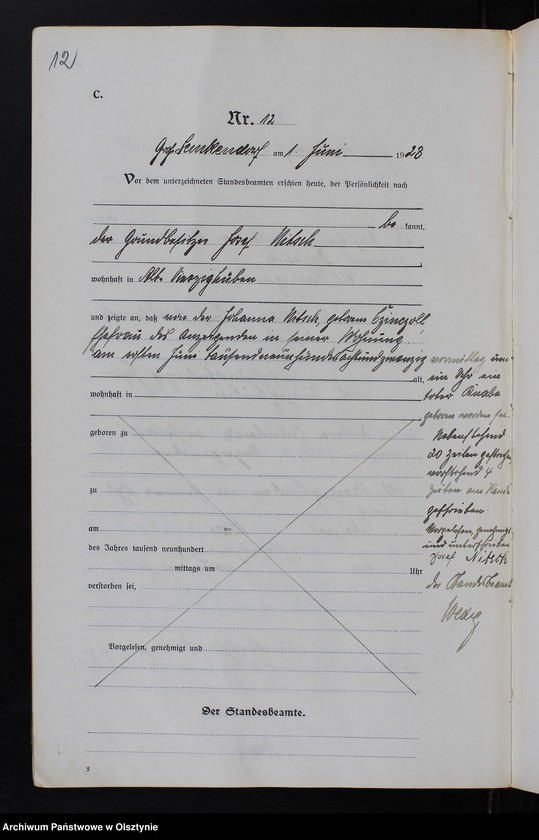 12
C.
Nr. 12
am 1. Juni 1928
Vor dem unterzeichneten Standesbeamten erschien heute, der Persönlichkeit nach
be kannt,
der Grundbesitzer Josef Nitsch
wohnhaft in Alt
und zeigte an, daß von der Johanna Nitsch, geborene
Ehefrau des Anzeigenden in seiner Wohnung
am ersten Juni tausendneunhundertachtundzwanzig vormittag um
alt, ein Uhr ein
wohnhaft in toter Knabe
geboren worden sei.
geboren zu Nebenstehend
20 Zeilen gestrichen,
vorstehend 4
zu Zeilen am Rande
geschrieben.
am ten Vorgelesen, genehmigt
und unterschrieben
des Jahres tausend neunhundert Josef Nitsch
mittags um Uhr
verstorben sei, Der Standesbeamte
Vorgelesen, genehmigt und
Der Standesbeamte.
3
Archiwum Państwowe w Olsztynie